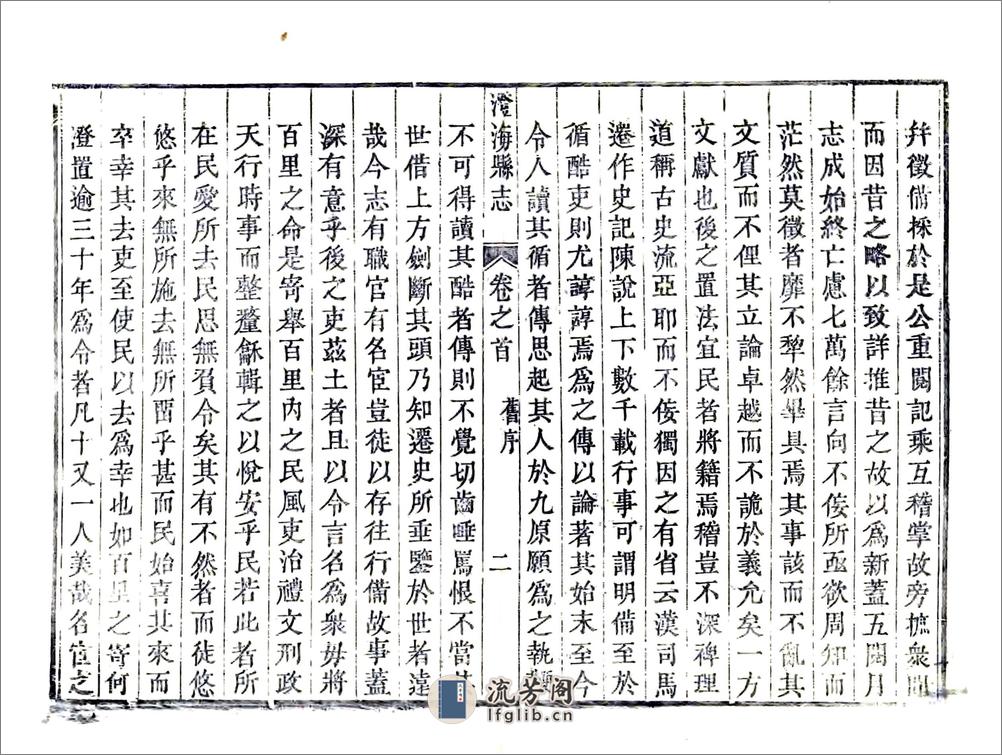 幷徵備採於是公重閱記乘互稽掌故旁摭衆聞
而因昔之略以致詳推昔之故以爲新蓋五閱月
志成始終亡慮七萬餘言向不佞所亟欲周知而
茫然莫徵者靡不犂然畢具焉其事該而不亂其
文質而不俚其立論卓越而不詭於義允矣一方
文獻也後之置法宜民者將籍焉稽豈不深裨理
道稱古史流亞耶而不佞獨因之有省云漢司馬
遷作史記陳說上下數千載行事可謂明備至於
循酷吏則尤諄諄焉爲之傳以論著其始末至今
令人讀其循者傳思起其人於九原願爲之執鞭
澄海縣志 卷之首 舊序 二
不可得讀其酷者傳則不覺切齒唾罵恨不當其
世借上方劍斷其頭乃知遷史所垂鑒於世者遠
哉今志有職官有名宦豈徒以存往行備故事蓋
深有意乎後之吏茲土者且以令言名爲衆毋將
百里之命是寄舉百里內之民風吏治禮文刑政
天行時事而整釐龢輯之以悅安乎民若此者所
在民愛所去民思無負令矣其有不然者而徒悠
悠乎來無所施去無所畱乎甚而民始喜其來而
卒幸其去吏至使民以去爲幸也如百里之寄何
澄置逾三十年爲令者凡十又一人美哉名宦之
流芳阁
lfglib.cn